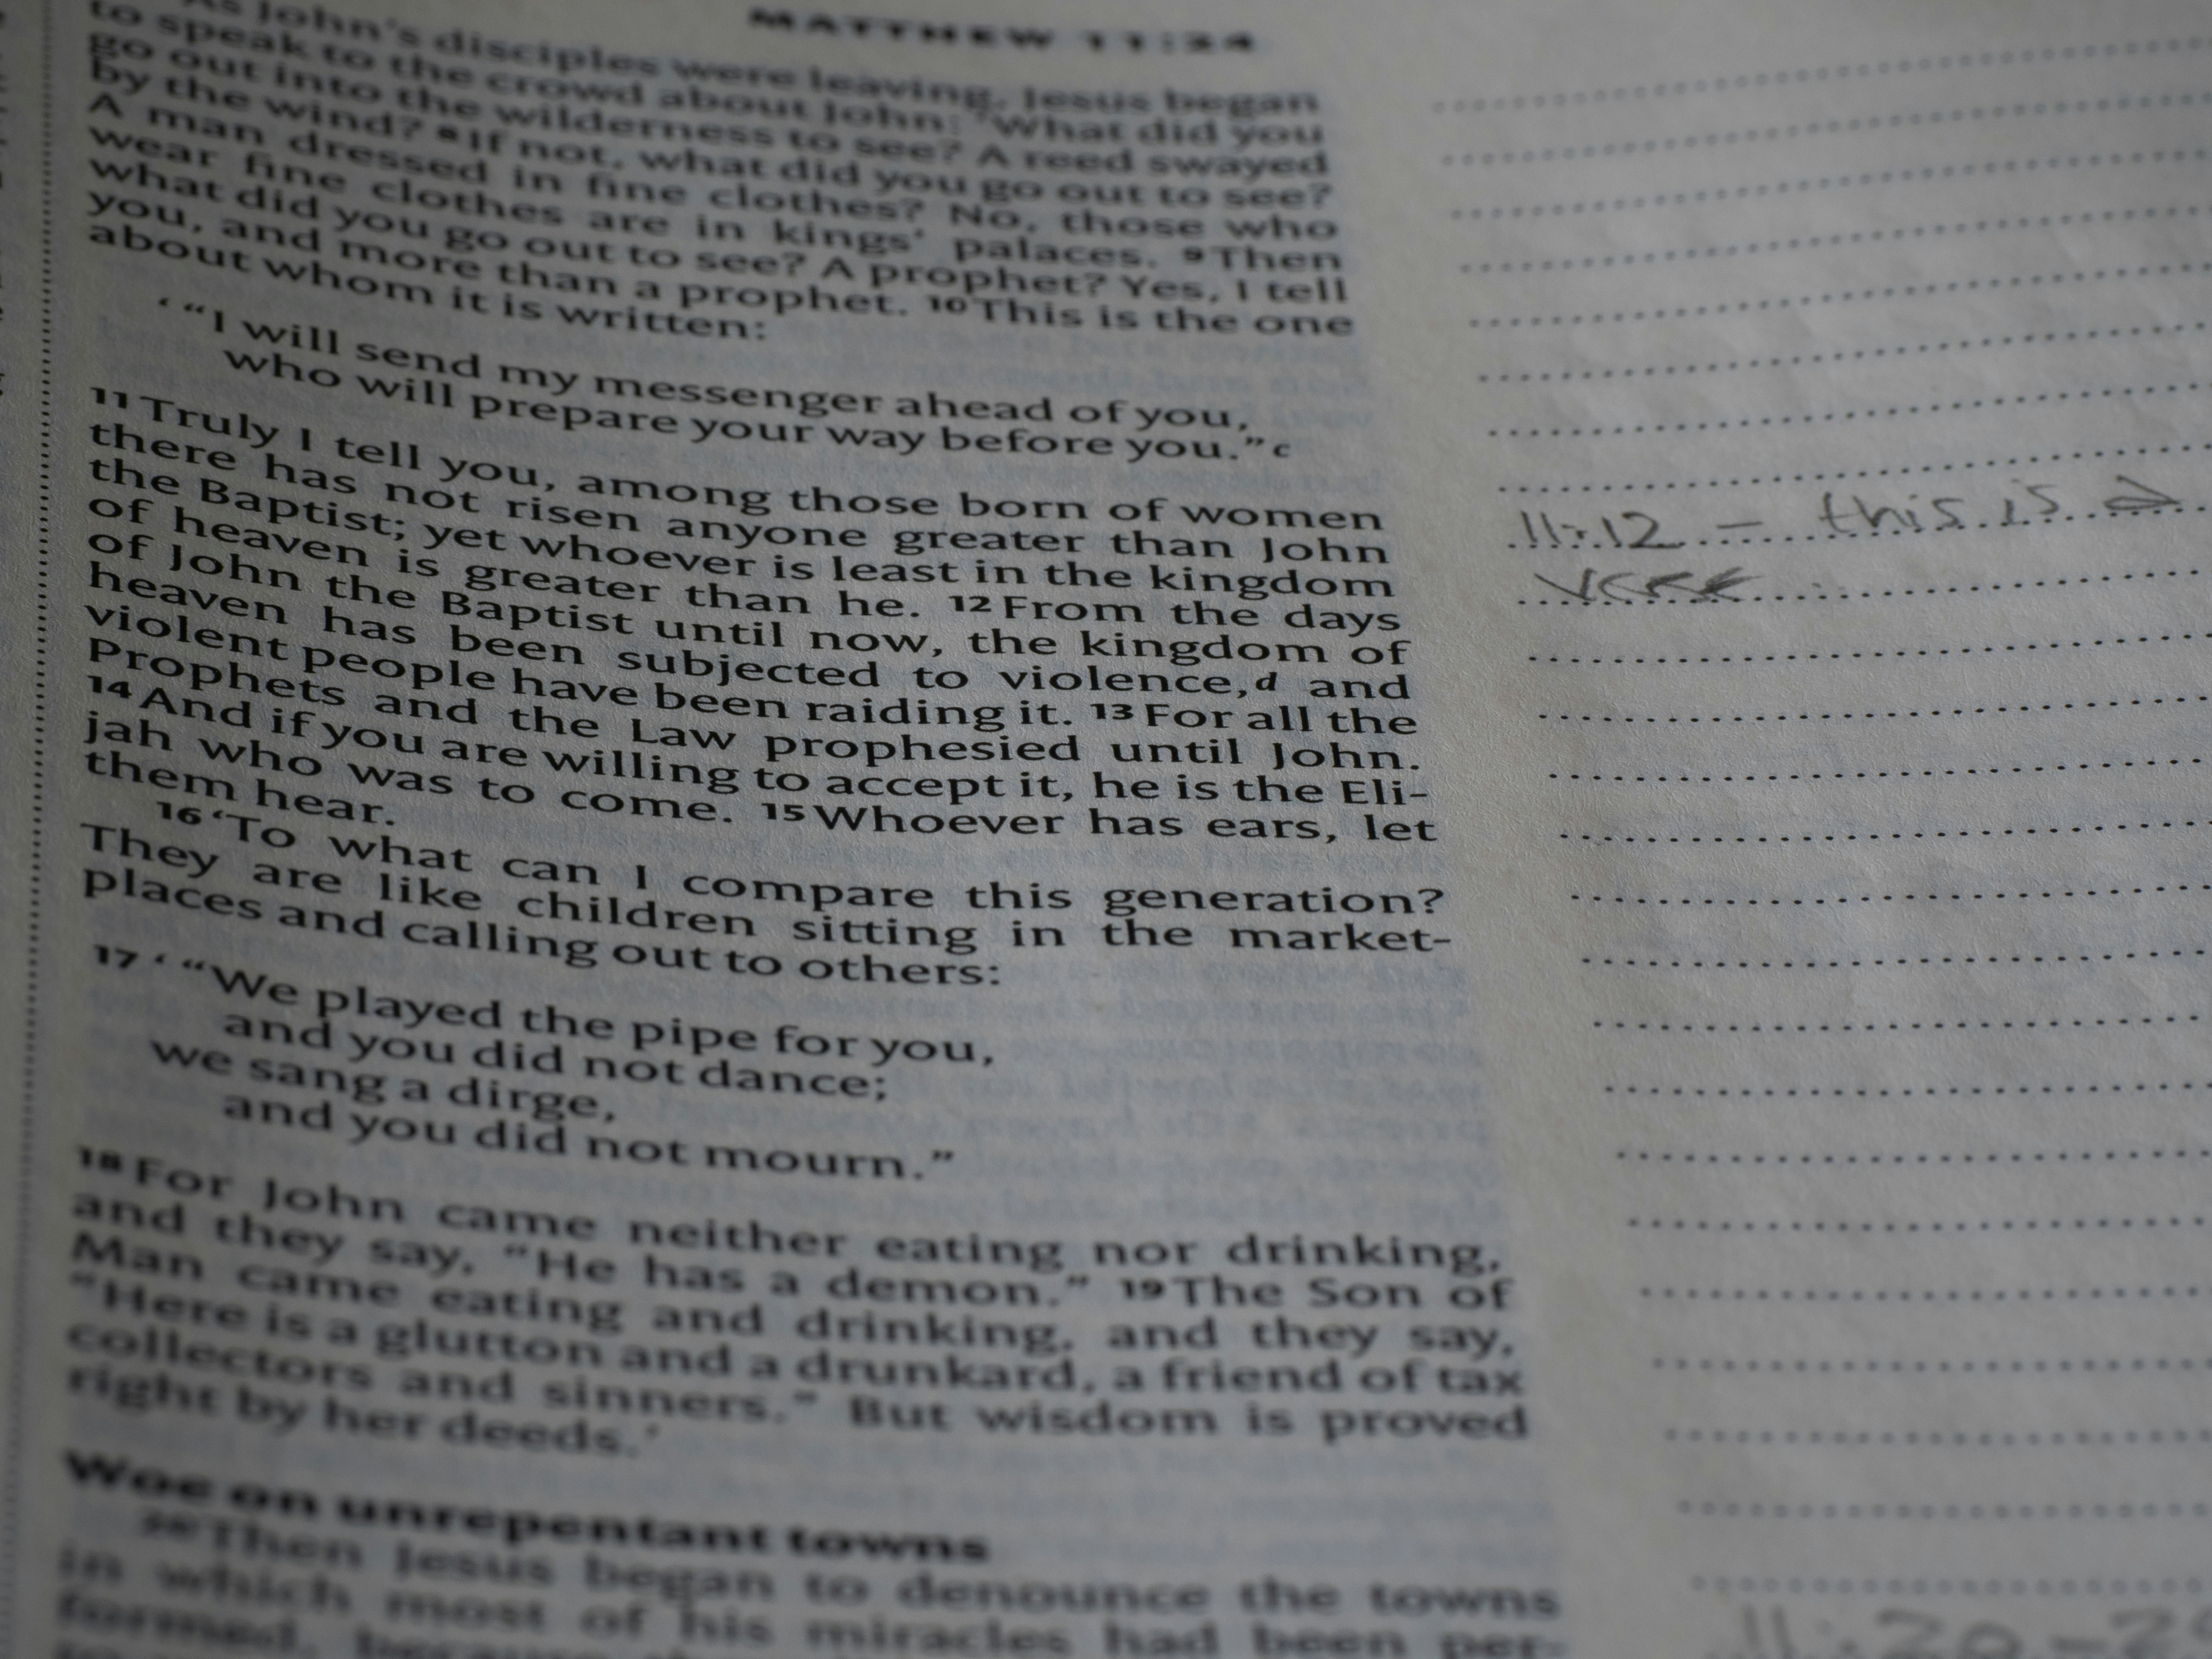 MATTHEW 11:24
As John's disciples were leaving, Jesus began
to speak to the crowd about John: 'What did you
go out into the wilderness to see? A reed swayed
by the wind? 8 If not, what did you go out to see?
A man dressed in fine clothes? No, those who
wear fine clothes are in kings' palaces. 9 Then
what did you go out to see? A prophet? Yes, I tell
you, and more than a prophet. 10 This is the one
about whom it is written:
' "I will send my messenger ahead of you,
who will prepare your way before you." c
11 Truly I tell you, among those born of women
there has not risen anyone greater than John
the Baptist; yet whoever is least in the kingdom
of heaven is greater than he. 12 From the days
of John the Baptist until now, the kingdom of
heaven has been subjected to violence,d and
violent people have been raiding it. 13 For all the
Prophets and the Law prophesied until John.
14 And if you are willing to accept it, he is the Eli-
jah who was to come. 15 Whoever has ears, let
them hear.
16 'To what can I compare this generation?
They are like children sitting in the market-
places and calling out to others:
17 ' "We played the pipe for you,
and you did not dance;
we sang a dirge,
and you did not mourn."
18 For John came neither eating nor drinking,
and they say, "He has a demon." 19 The Son of
Man came eating and drinking, and they say,
"Here is a glutton and a drunkard, a friend of tax
collectors and sinners." But wisdom is proved
right by her deeds.'
Woe on unrepentant towns
20 Then Jesus began to denounce the towns
in which most of his miracles had been per-
formed, because
11:12 – this is a
verse
11:20-2